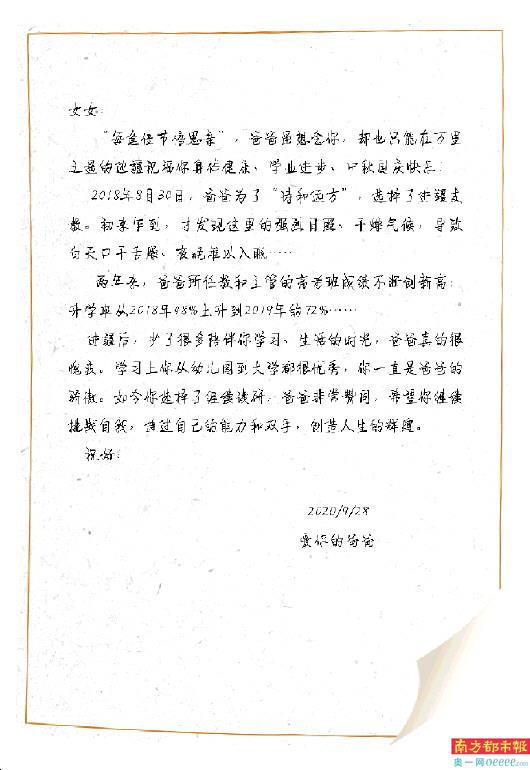 女女：
“每逢佳节倍思亲”，爸爸虽想念你，却也只能在万里
之遥的边疆祝福你身体健康、学业进步、中秋国庆快乐！
2018年8月30日，爸爸为了“诗和远方”，选择了进疆支
教。初来乍到，才发现这里的强烈日照、干燥气候，导致
白天口干舌燥、夜晚难以入眠……
两年来，爸爸所任教和主管的高考班成绩不断创新高：
升学率从2018年48%上升到2019年的72%……
进疆后，少了很多陪伴你学习、生活的时光，爸爸真的很
愧疚。学习上你从幼儿园到大学都很优秀，你一直是爸爸的
骄傲。如今你选择了继续读研，爸爸非常赞同，希望你继续
挑战自我，通过自己的能力和双手，创造人生的辉煌。
祝好！
2020/9/28
爱你的爸爸
南方都市報
奥一网oeeee.com